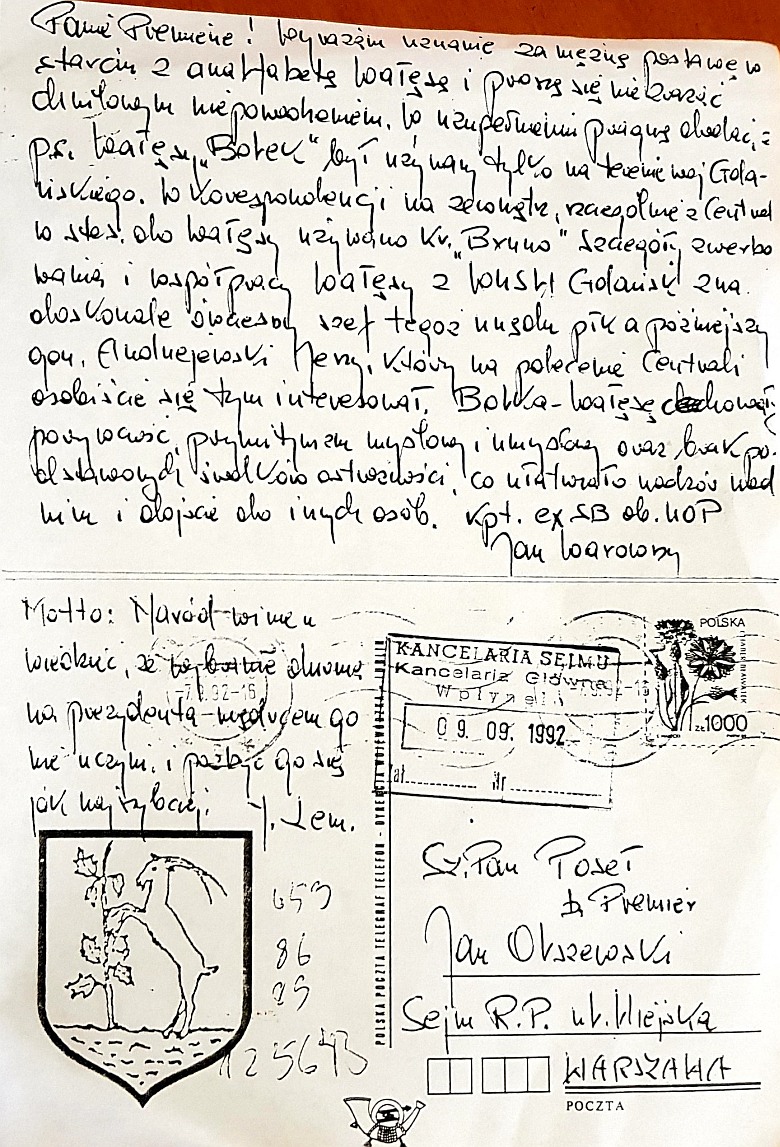 Panie Premierze! Wyrażam uznanie za mężną postawę w
starciu z analfabetą Wałęsą i proszę się nie zrazić
chwilowym niepowodzeniem. W uzupełnieniu pragnę dodać, że
ps. Wałęsy „Bolek" był używany tylko na terenie woj Gda-
ńskiego. W korespondencji na zewnątrz, szczególnie z Centralą
w stos. do Wałęsy używano kr. „Bruno" Szczegóły zwerbo
wania i współpracy Wałęsy z WUSW Gdańsk zna
doskonale ówczesny szef tegoż urzędu płk a późniejszy
gen. Andrzejewski Jerzy, który na polecenie Centrali
osobiście się tym interesował. Bolka-Wałęsę cechował
prymitywizm myślowy i umysłowy oraz brak po-
dstawowych środków ostrożności, co ułatwiało nadzór nad
nim i dojście do innych osób. Kpt. ex SB ob. UOP
Jan Warowny
Motto: Naród winien
wiedzieć, że durnia
na prezydenta mędrcem go
nie uczyni, i pozbyć go się
jak najszybciej. J. Lem.
-7.9.92-16
KANCELARIA SEJMU
Kancelaria Główna
Wpłynęło
09. 09. 1992
zał. Nr
POLSKA
zł 1000
POLSKA POCZTA TELEGRAF TELEFON - DYREKCJA WOJEWÓDZKA
Sz. Pan Poseł
b. Premier
Jan Olszewski
Sejm R.P. ul. Wiejska
WARSZAWA
POCZTA
653
86
25